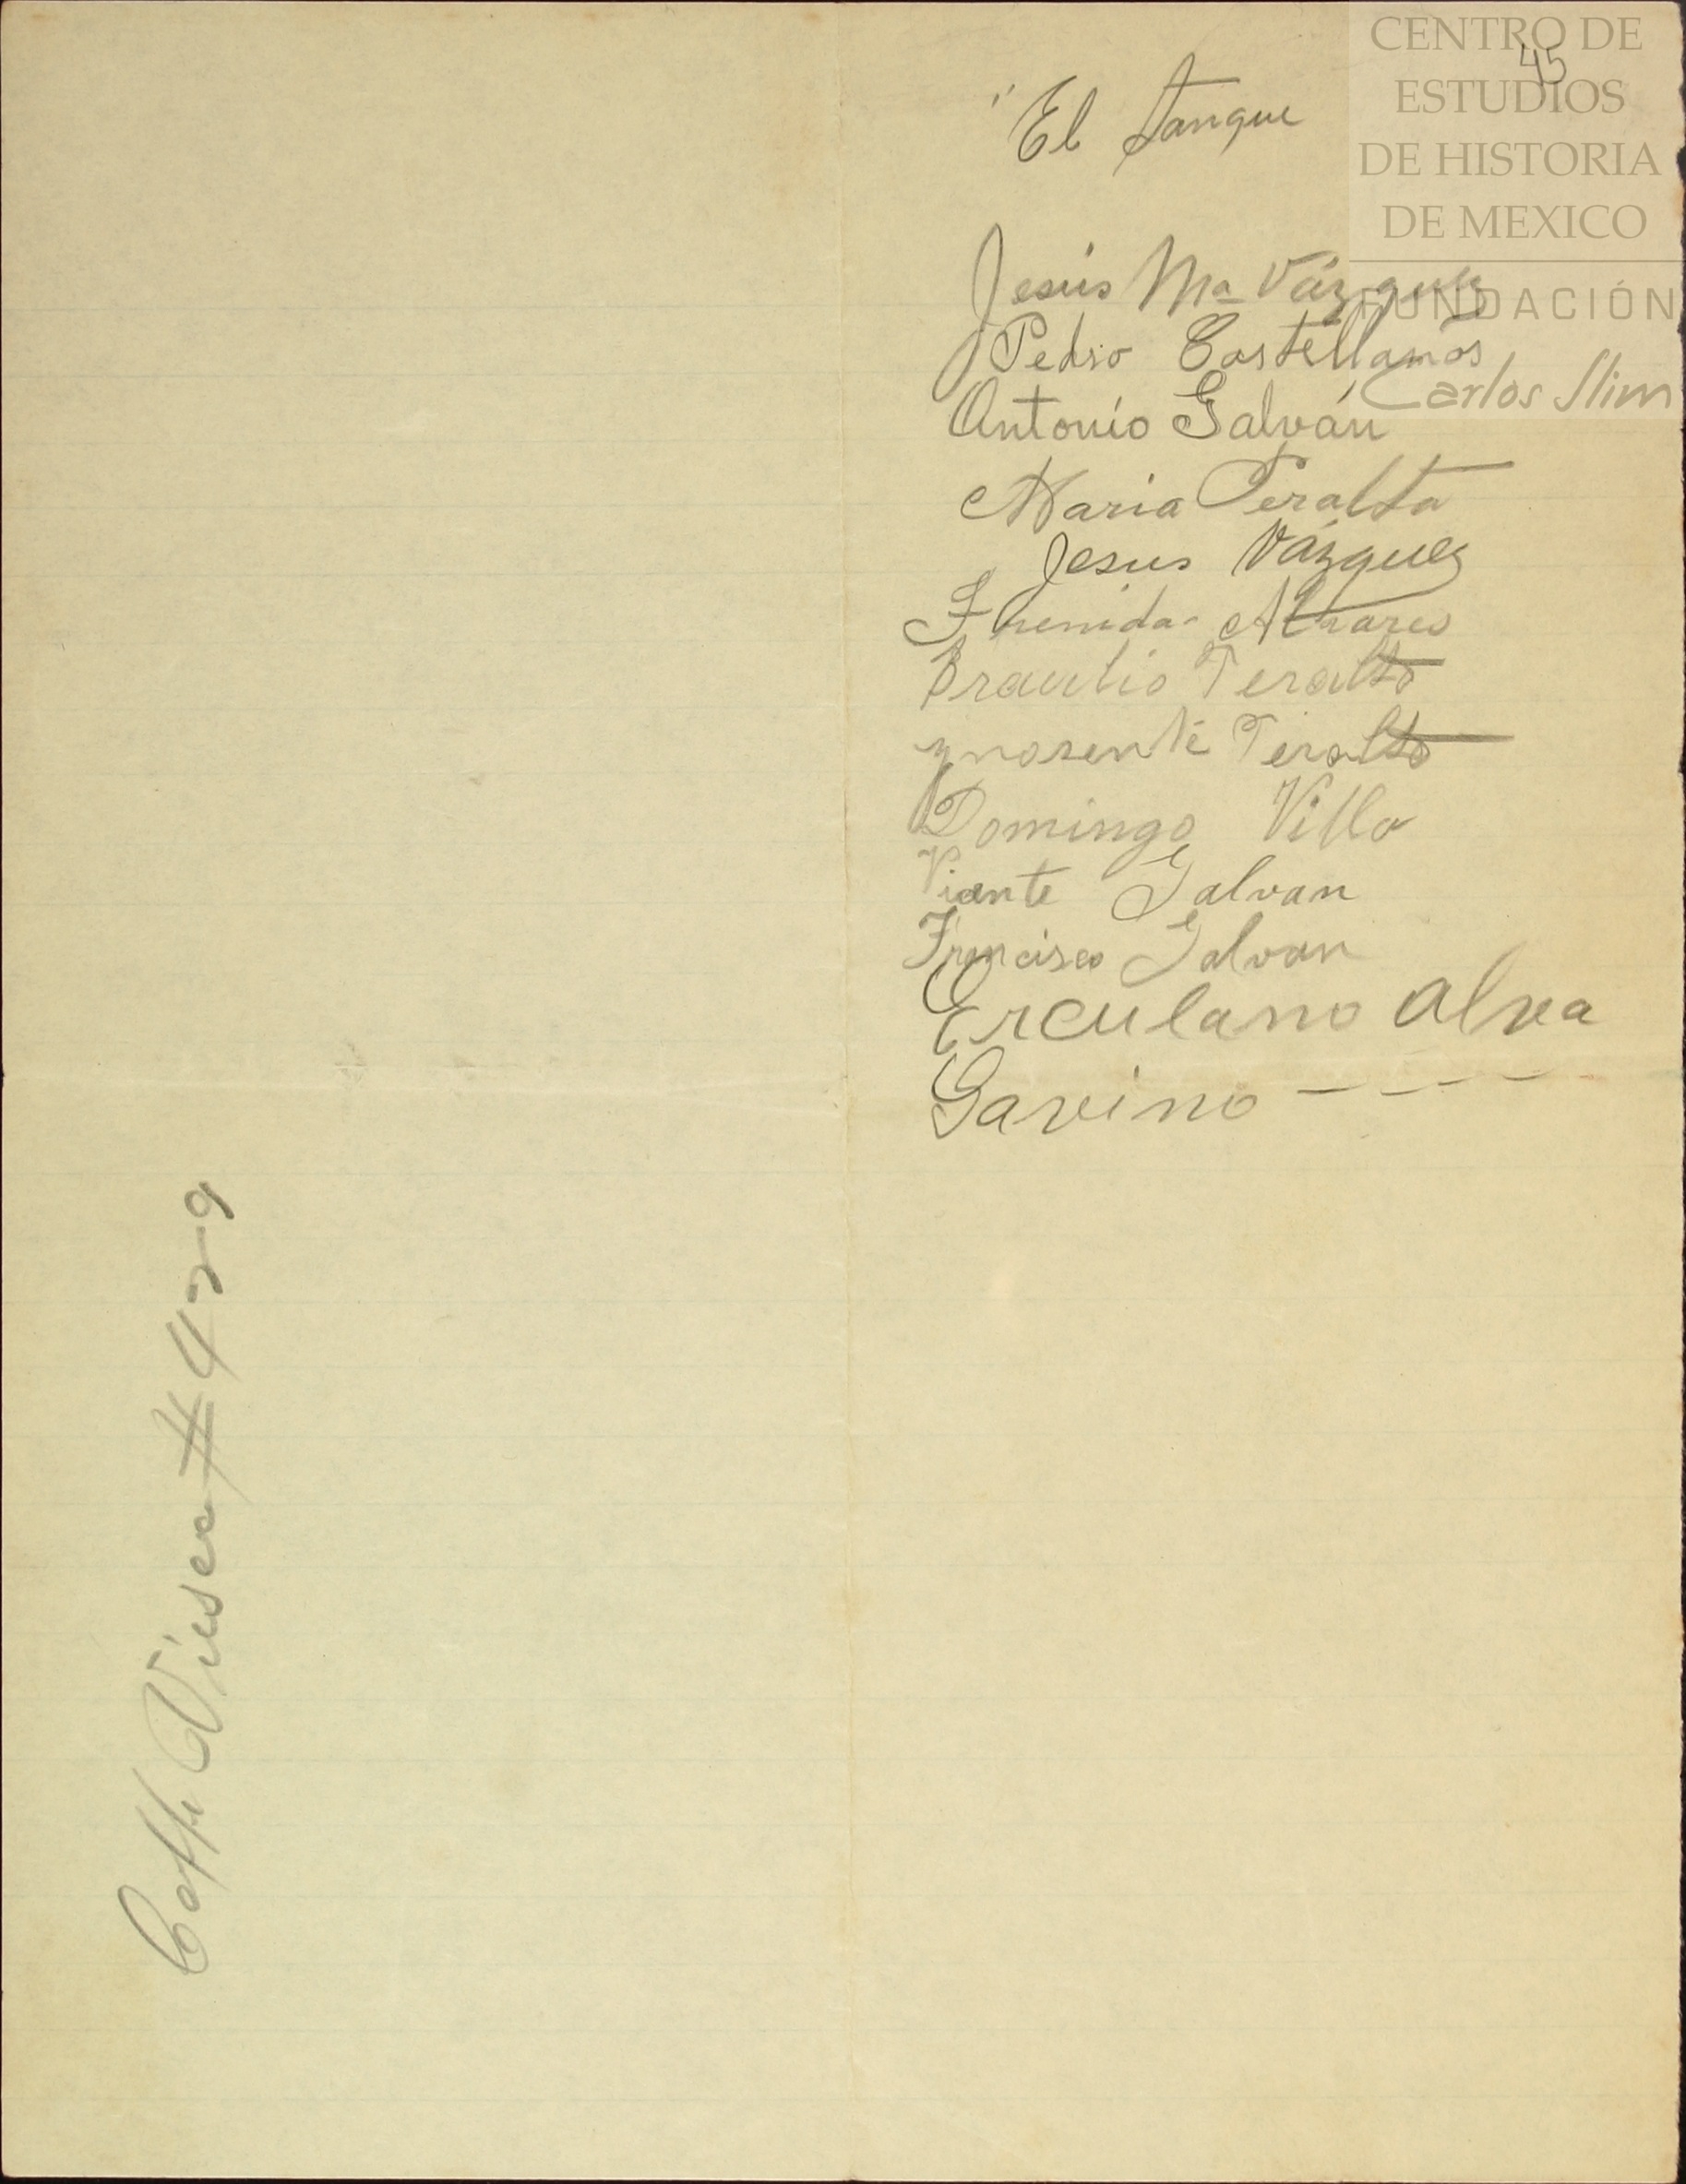 45
"El Tanque
Jesús Ma Vázquez
Pedro Castellanos
Antonio Galván
Maria Peralta
Jesus Vázquez
Alvares
Braulio Peralta
ynosente Peralta
Domingo Villa
Viente Galvan
Francisco Galvan
Erculano alva
Gavino - - - -
Viesca # 429
CENTRO DE
ESTUDIOS
DE HISTORIA
DE MEXICO
FUNDACIÓN
Carlos Slim